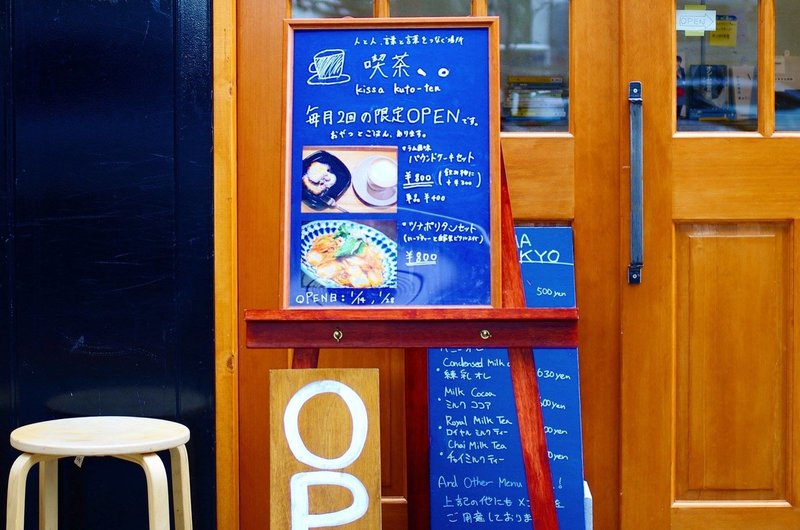 人と人、言葉と言葉をつなぐ場所
喫茶、。
kissa kuto-ten
毎月2回の限定OPENです。
おやつとごはん、あります。
ラム風味
パウンドケーキセット
¥800
単品 ¥400
ツナポリタンセット
¥800
OPEN日: 1/14 , 1/28
OPEN
KYO
500yen
Condensed Milk
練乳オレ
630yen
Milk Cocoa
ミルクココア
Royal Milk Tea
ロイヤルミルクティー
Chai Milk Tea
チャイミルクティー
And Other Menu
上記の他にも
ご用意しております
OP